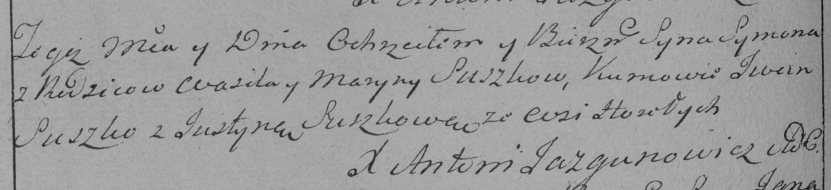 Tegoż Mca y Dnia Ochrzciłem y Bierzm Syna Symona
z Rodzicow Wasila y Maryny Suszkow, Kumowie Iwan
Suszko z Justyną Suszkową ze wsi
X Antoni Jazgunowicz